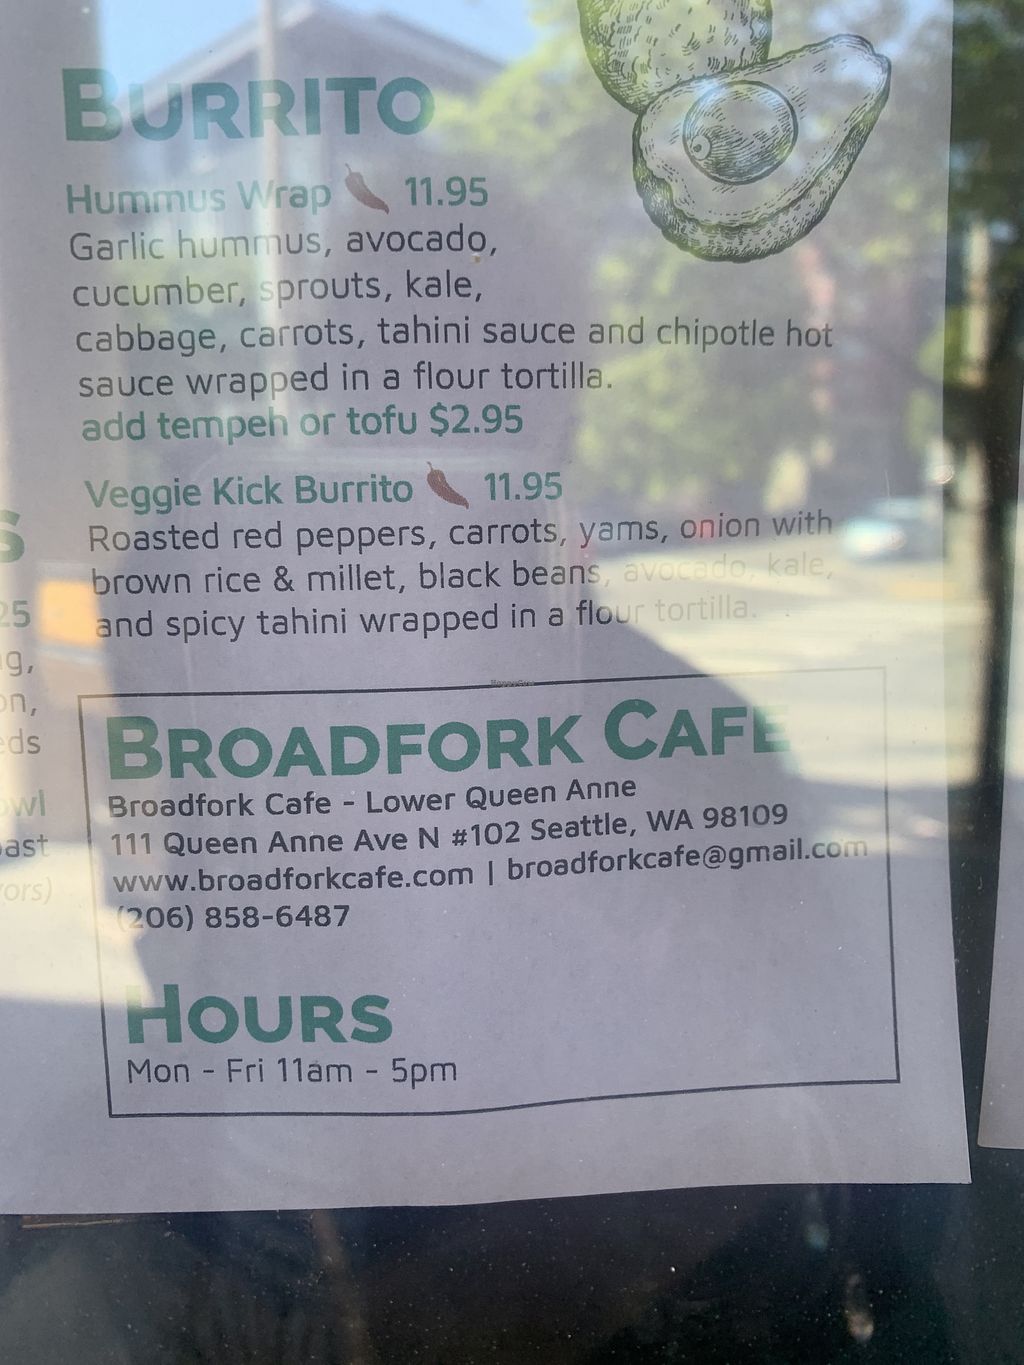 BURRITO
Hummus Wrap 11.95
Garlic hummus, avocado,
cucumber, sprouts, kale,
cabbage, carrots, tahini sauce and chipotle hot
sauce wrapped in a flour tortilla.
add tempeh or tofu $2.95
Veggie Kick Burrito 11.95
Roasted red peppers, carrots, yams, onion with
brown rice & millet, black beans, avocado, kale,
and spicy tahini wrapped in a flour tortilla.
S
25
g,
on,
eds
owl
ast
ors)
HappyCow
BROADFORK CAFE
Broadfork Cafe - Lower Queen Anne
111 Queen Anne Ave N #102 Seattle, WA 98109
www.broadforkcafe.com | broadforkcafe@gmail.com
(206) 858-6487
HOURS
Mon - Fri 11am - 5pm